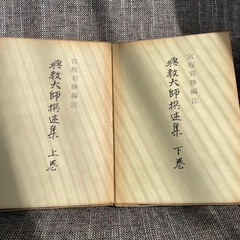 宮坂宥勝編注
興教大師撰述集 上巻
宮坂宥勝編注
興教大師撰述集 下巻